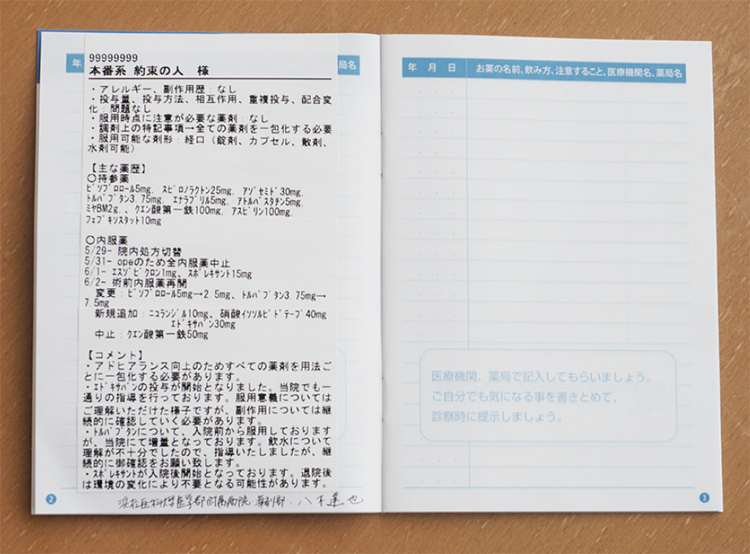 年
局名
99999999
本番系 約束の人 様
・アレルギー、副作用歴：なし
・投与量、投与方法、相互作用、重複投与、配合変
化：問題なし
・服用時点に注意が必要な薬剤：なし
・調剤上の特記事項→全ての薬剤を一包化する必要
・服用可能な剤形：経口（錠剤、カプセル、散剤、
水剤可能）
【主な薬歴】
○持参薬
ﾋﾞｿﾌﾟﾛﾛｰﾙ5mg, ｽﾋﾟﾛﾉﾗｸﾄﾝ25mg, ｱｿﾞｾﾐﾄﾞ30mg,
ﾄﾙﾊﾞﾌﾟﾀﾝ3.75mg, ｴﾅﾗﾌﾟﾘﾙ5mg, ｱﾄﾙﾊﾞｽﾀﾁﾝ5mg,
ﾐﾔBM2g,、ｸｴﾝ酸第一鉄100mg, ｱｽﾋﾟﾘﾝ100mg,
ﾌｪﾌﾞｷｿｽﾀｯﾄ10mg
○内服薬
5/29- 院内処方切替
5/31- opeのため全内服薬中止
6/1- ｴｽｿﾞﾋﾟｸﾛﾝ1mg、ｽﾎﾞﾚｷｻﾝﾄ15mg
6/2- 術前内服薬再開
変更：ﾋﾞｿﾌﾟﾛﾛｰﾙ5mg→2.5mg、ﾄﾙﾊﾞﾌﾟﾀﾝ3.75mg→
7.5mg
新規追加：ﾆｺﾗﾝｼﾞﾙ10mg、硝酸ｲｿｿﾙﾋﾞﾄﾞﾃｰﾌﾟ40mg
ｴﾄﾞｷｻﾊﾞﾝ30mg
中止：ｸｴﾝ酸第一鉄50mg
【コメント】
・アドヒアランス向上のためすべての薬剤を用法ご
とに一包化する必要があります。
・ｴﾄﾞｷｻﾊﾞﾝの投与が開始となりました。当院でも一
通りの指導を行っております。服用意義については
ご理解いただけた様子ですが、副作用については継
続的に確認していく必要があります。
・ﾄﾙﾊﾞﾌﾟﾀﾝについて、入院前から服用しております
が、当院にて増量となっております。飲水について
理解が不十分でしたので、指導いたしましたが、継
続的に御確認をお願い致します。
・ｽﾎﾞﾚｷｻﾝﾄが入院後開始となっております。退院後
は環境の変化により不要となる可能性があります。
浜松医科大学医学部附属病院 薬剤部 八木達也
2
年 月 日
お薬の名前、飲み方、注意すること、医療機関名、薬局名
医療機関、薬局で記入してもらいましょう。
ご自分でも気になる事を書きとめて、
診察時に提示しましょう。
3